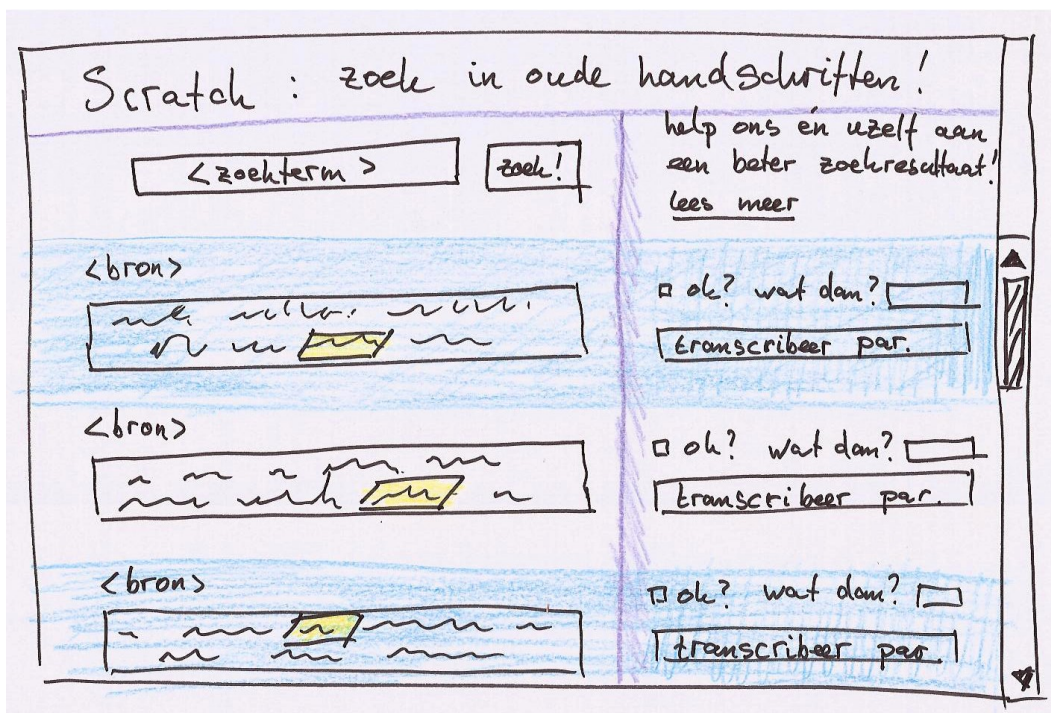 Scratch : zoek in oude handschriften!
<zoekterm>
zoek!
help ons én uzelf aan
een beter zoekresultaat!
lees meer
<bron>
ok? wat dan?
transcribeer par.
<bron>
ok? wat dan?
transcribeer par.
<bron>
ok? wat dan?
transcribeer par.